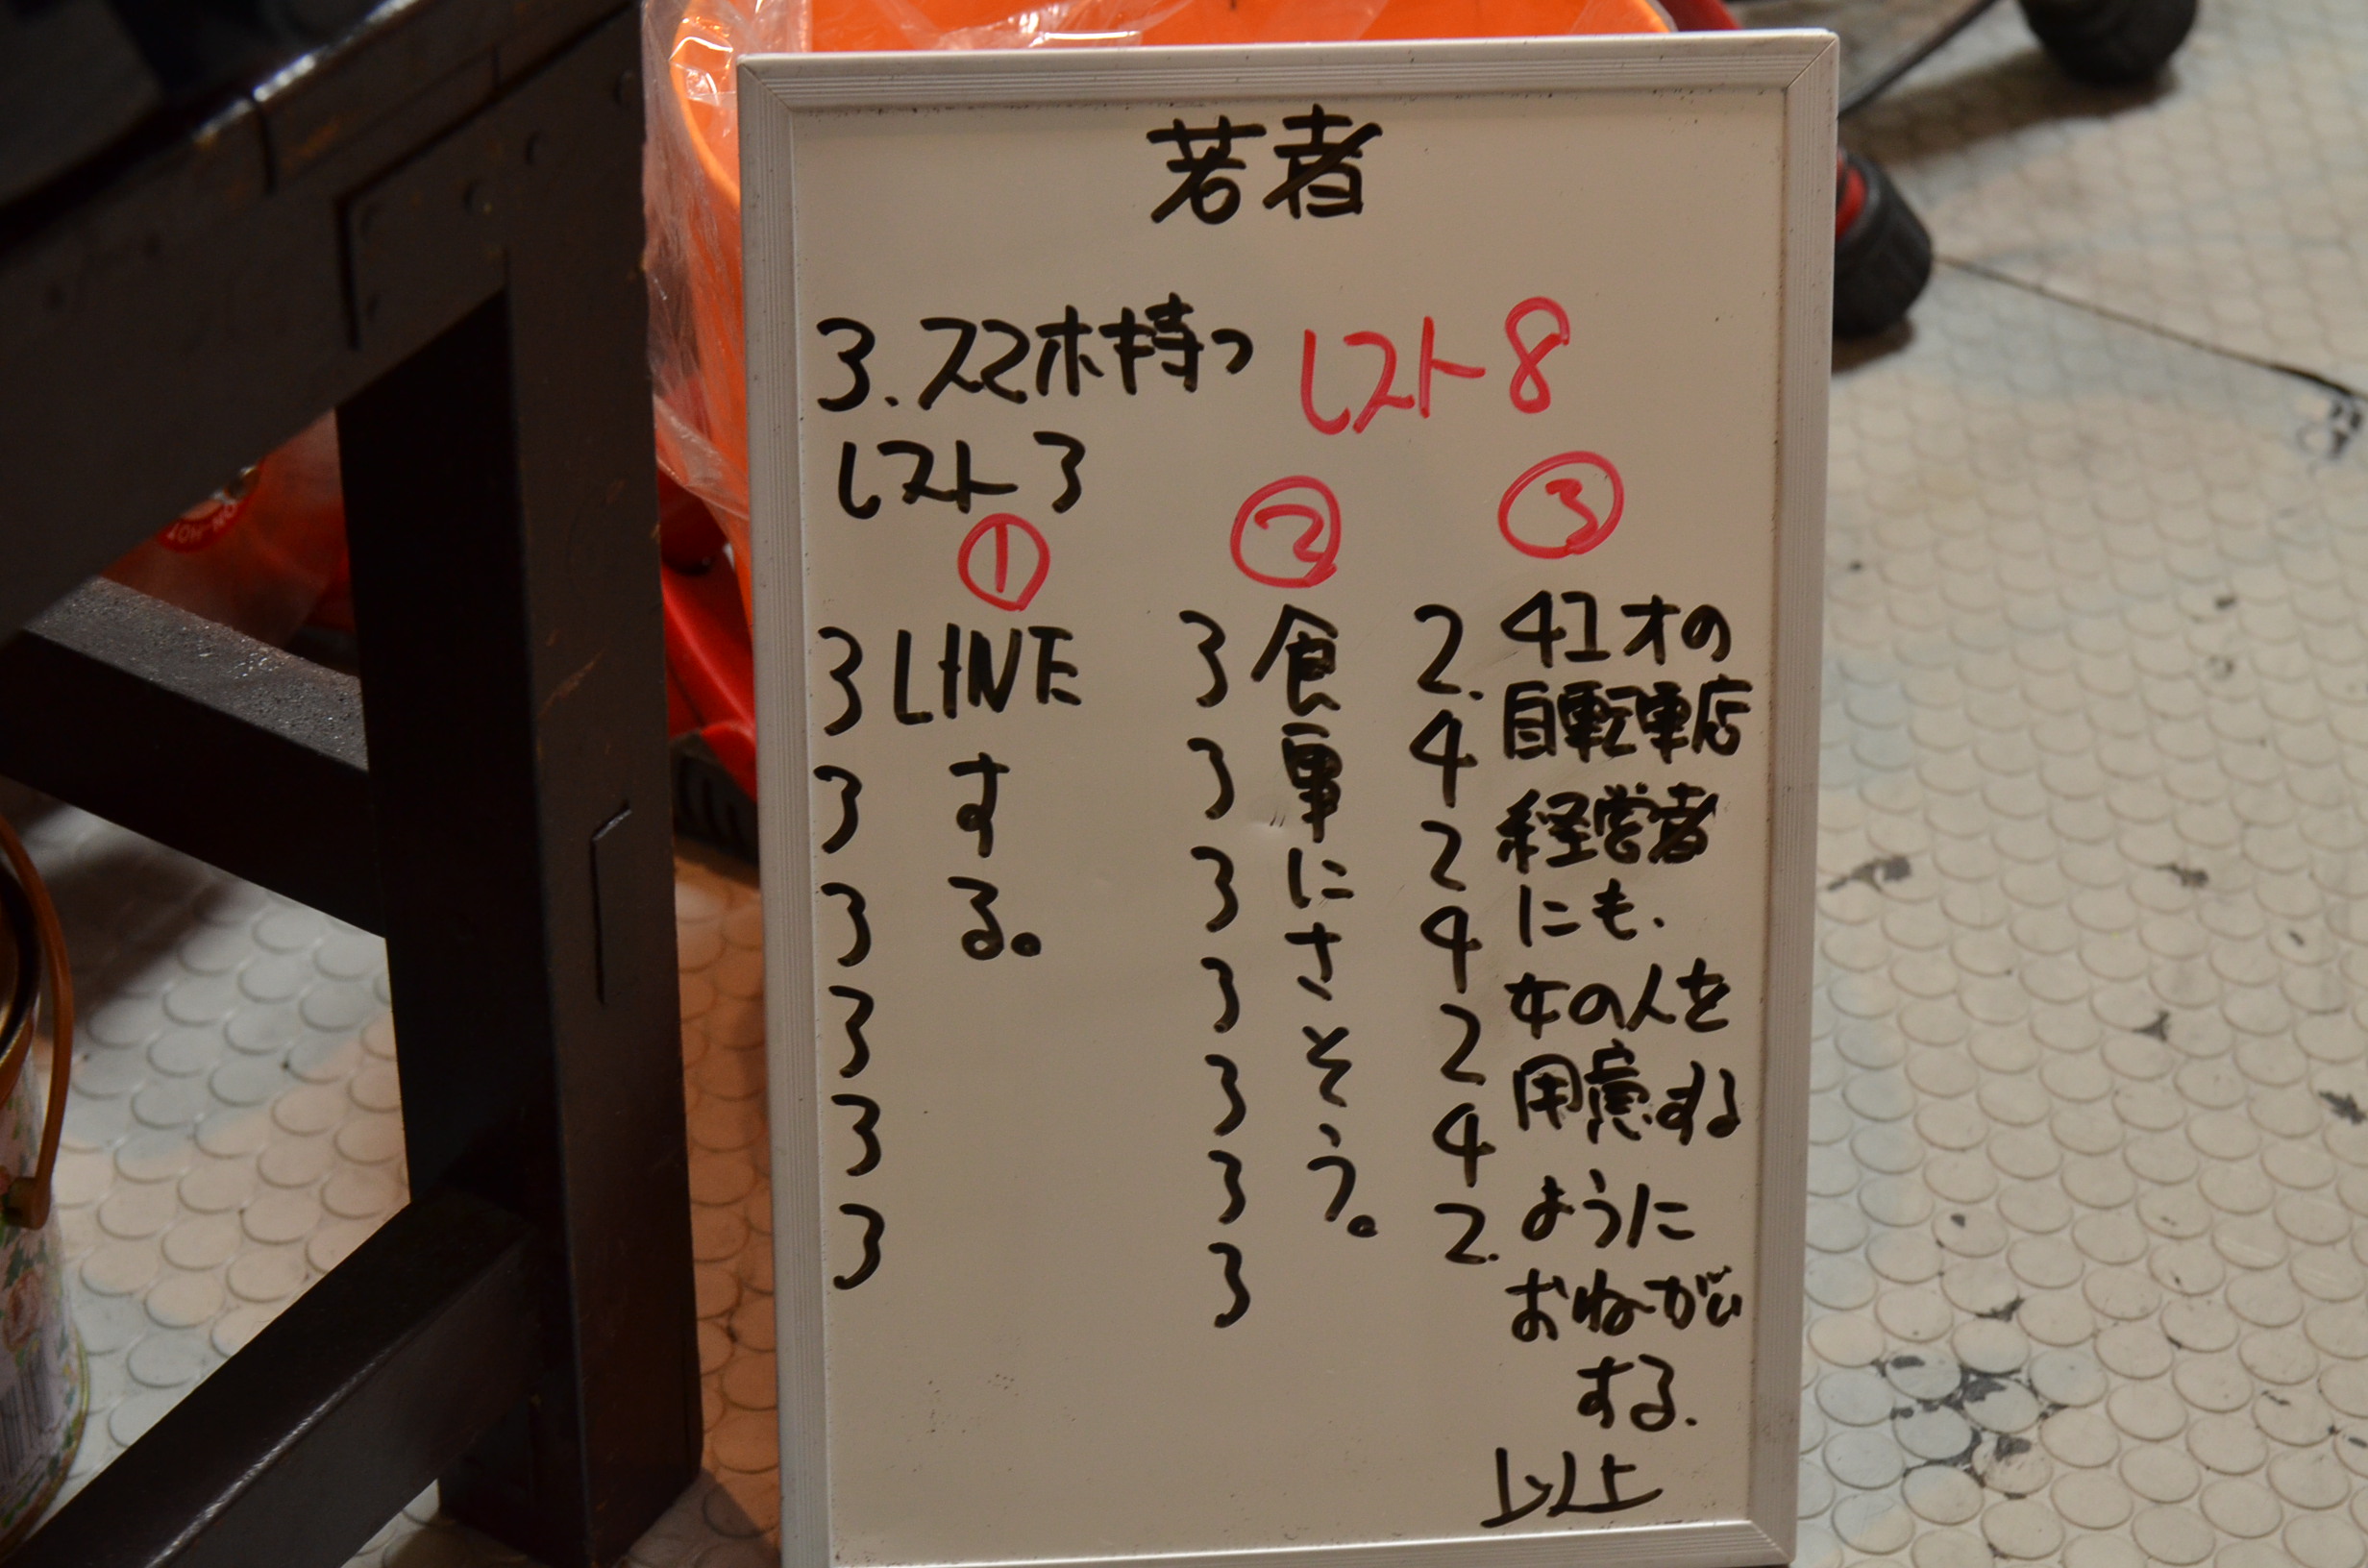 若者
3. スマホ持つ レスト8
レスト3
①
3 LINE
3 す
3 る。
3
3
3
②
3 食
3 事
3 に
3 さ
3 そ
3 う。
3
③
2. 41才の
4 自転車店
2 経営者
4 にも、
2 女の人を
4 用意する
2. ように
おねがい
する.
以上